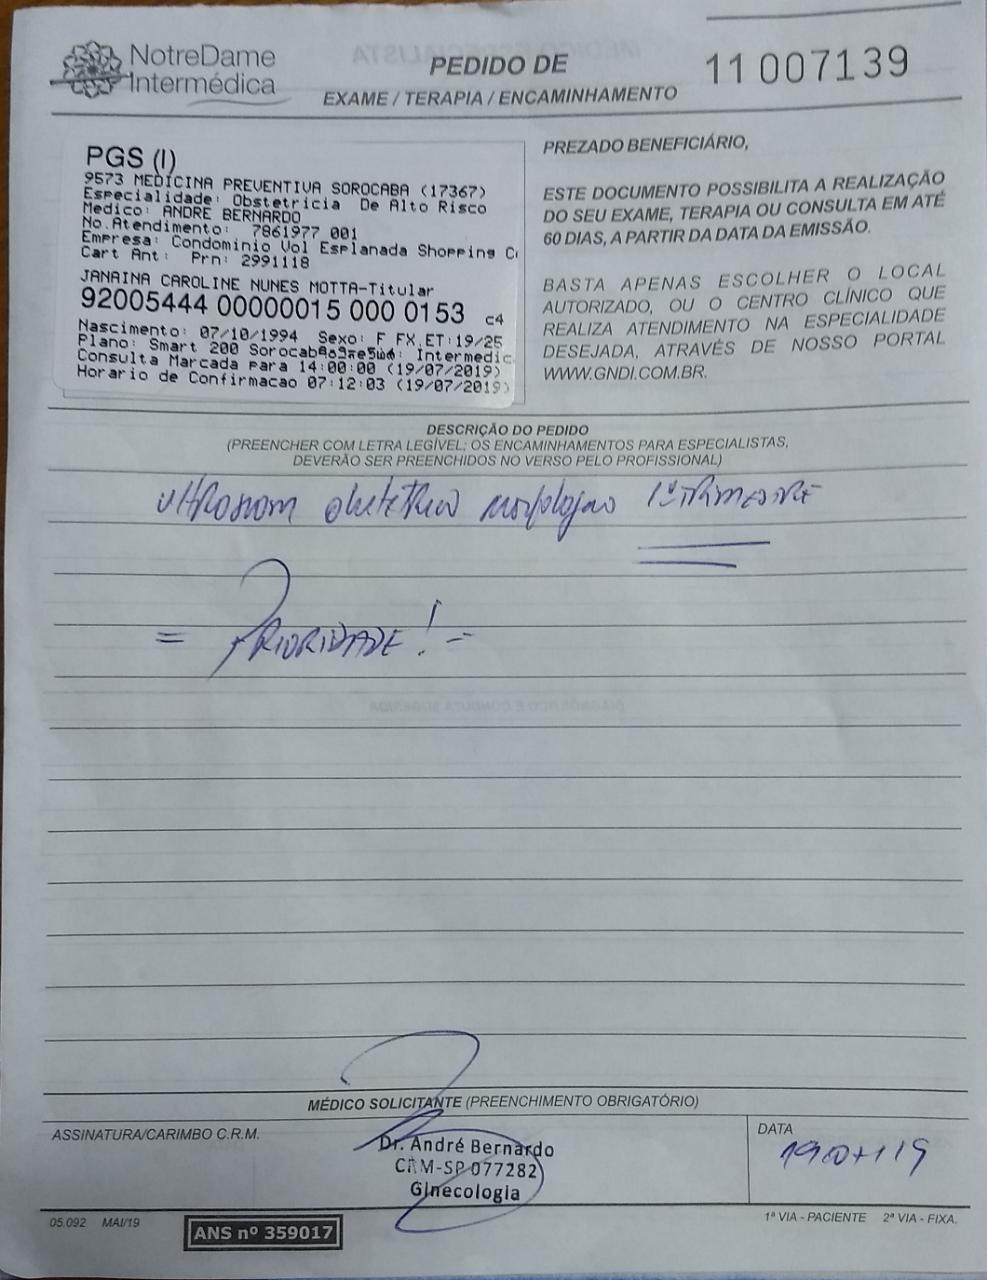 NotreDame
Intermédica
PEDIDO DE
EXAME / TERAPIA / ENCAMINHAMENTO
11 007139
PGS (I)
9573 MEDICINA PREVENTIVA SOROCABA (17367)
Especialidade: Obstetricia De Alto Risco
Medico: ANDRE BERNARDO
No.Atendimento: 7861977 001
Empresa: Condominio Vol Esplanada Shopping C
Cart Ant: Prn: 2991118
JANAINA CAROLINE NUNES MOTTA-Titular
92005444 00000015 000 0153 c4
Nascimento: 07/10/1994 Sexo: F FX.ET:19/25
Plano: Smart 200 Intermedic
Consulta Marcada para 14:00:00 (19/07/2019)
Horario de Confirmacao 07:12:03 (19/07/2019)
PREZADO BENEFICIÁRIO,
ESTE DOCUMENTO POSSIBILITA A REALIZAÇÃO
DO SEU EXAME, TERAPIA OU CONSULTA EM ATÉ
60 DIAS, A PARTIR DA DATA DA EMISSÃO.
BASTA APENAS ESCOLHER O LOCAL
AUTORIZADO, OU O CENTRO CLÍNICO QUE
REALIZA ATENDIMENTO NA ESPECIALIDADE
DESEJADA, ATRAVÉS DE NOSSO PORTAL
WWW.GNDI.COM.BR.
DESCRIÇÃO DO PEDIDO
(PREENCHER COM LETRA LEGÍVEL; OS ENCAMINHAMENTOS PARA ESPECIALISTAS,
DEVERÃO SER PREENCHIDOS NO VERSO PELO PROFISSIONAL)
ultrassom obstetrico morfologico 1º TRIMESTRE
= PRIORIDADE! =
MÉDICO SOLICITANTE (PREENCHIMENTO OBRIGATÓRIO)
ASSINATURA/CARIMBO C.R.M.
Dr. André Bernardo
CRM-SP 077282
Ginecologia
DATA
19 07 19
05.092 MAI/19
ANS nº 359017
1ª VIA - PACIENTE 2ª VIA - FIXA.